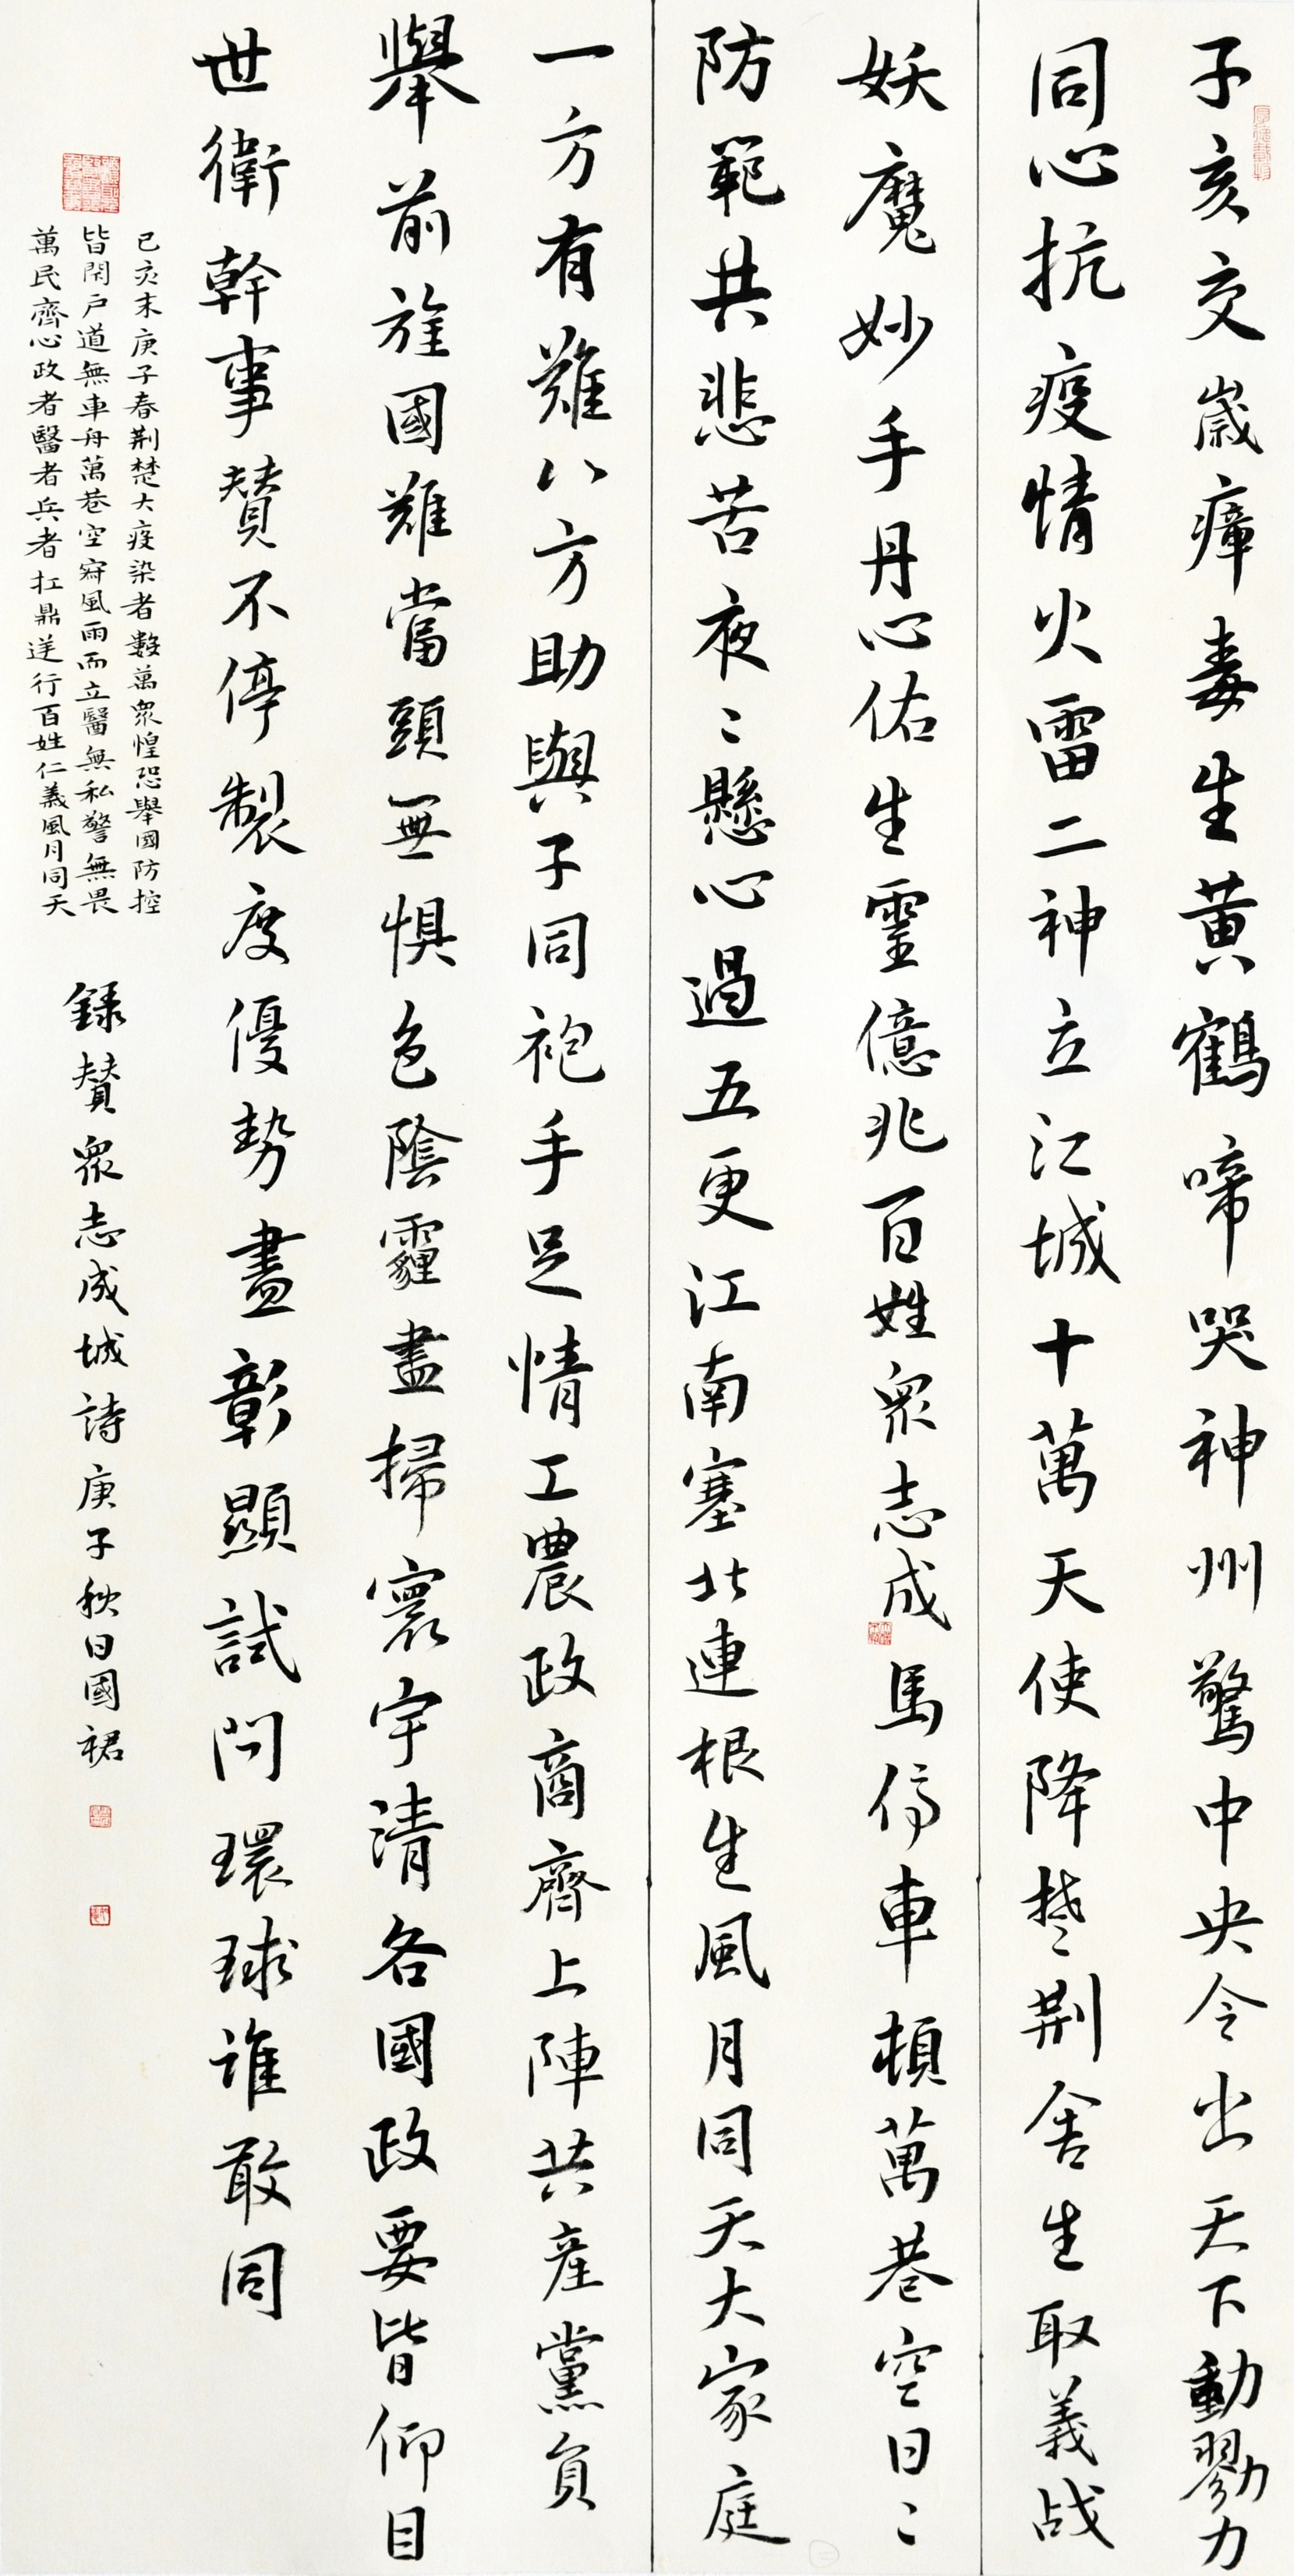 子亥交歲瘴毒生黃鶴啼哭神州驚中央令出天下動勠力
同心抗疫情火雷二神立江城十萬天使降楚荆舍生取義战
妖魔妙手丹心佑生靈億兆百姓眾志成馬停車頓萬巷空日〻
防範共悲苦夜〻懸心過五更江南塞北連根生風月同天大家庭
一方有難八方助與子同袍手足情工農政商齊上陣共産黨員
舉前旌國難當頭無懼色陰霾盡掃寰宇清各國政要皆仰目
世衛幹事贊不停製度優勢盡彰顯試問環球誰敢同
己亥末庚子春荆楚大疫染者數萬眾惶恐舉國防控
皆閉戶道無車舟萬巷空寂風雨而立醫無私警無畏
萬民齊心政者醫者兵者扛鼎逆行百姓仁義風月同天
錄贊眾志成城詩庚子秋日國裙